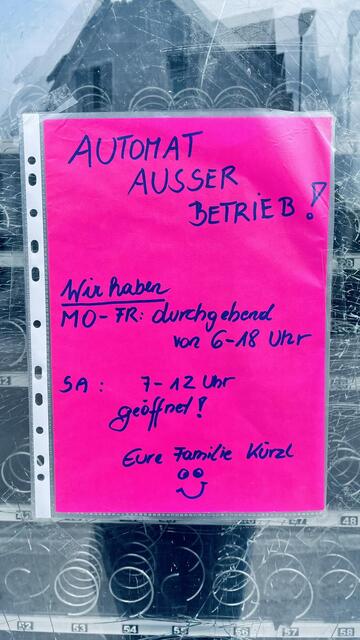 AUTOMAT
AUSSER
BETRIEB!
Wir haben
MO-FR: durchgehend
von 6-18 Uhr
SA: 7-12 Uhr
geöffnet!
Eure Familie Kürzl
52 53 54 55 56 57 58